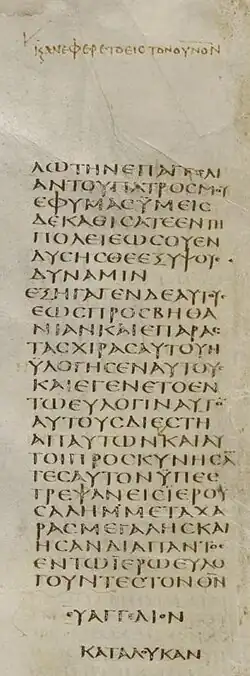 ϗΑΝΕΦΕΡΕΤΟΕΙϹΤΟΝΟΥΝΟΝ
ΛΩΤΗΝΕΠΑΓΓΕΛΙ
ΑΝΤΟΥΠΑΤΡΟϹΜΟΥ
ΕΦΥΜΑϹΫΜΕΙϹ
ΔΕΚΑΘΙϹΑΤΕΕΝΤΗ
ΠΟΛΕΙΕΩϹΟΥΕΝ
ΔΥϹΗϹΘΕΕΞΥΨΟΥϹ
ΔΥΝΑΜΙΝ
ΕΞΗΓΑΓΕΝΔΕΑΥΤΟΥϹ
ΕΩϹΠΡΟϹΒΗΘΑ
ΝΙΑΝΚΑΙΕΠΑΡΑϹ
ΤΑϹΧΙΡΑϹΑΥΤΟΥΗ
ΫΛΟΓΗϹΕΝΑΥΤΟΥϹ
ΚΑΙΕΓΕΝΕΤΟΕΝ
ΤΩΕΥΛΟΓΙΝΑΥΤΟ̅
ΑΥΤΟΥϹΔΙΕϹΤΗ
ΑΠΑΥΤΩΝΚΑΙΑΥ
ΤΟΙΠΡΟϹΚΥΝΗϹΑ̅
ΤΕϹΑΥΤΟΝΫΠΕϹ
ΤΡΕΨΑΝΕΙϹΪΕΡΟΥ
ϹΑΛΗΜΜΕΤΑΧΑ
ΡΑϹΜΕΓΑΛΗϹΚΑΙ
ΗϹΑΝΔΙΑΠΑΝΤΟϹ
ΕΝΤΩΪΕΡΩΕΥΛΟ
ΓΟΥΝΤΕϹΤΟΝΘ̅Ν̅
ΕΥΑΓΓΕΛΙΟΝ
ΚΑΤΑΛΟΥΚΑΝ